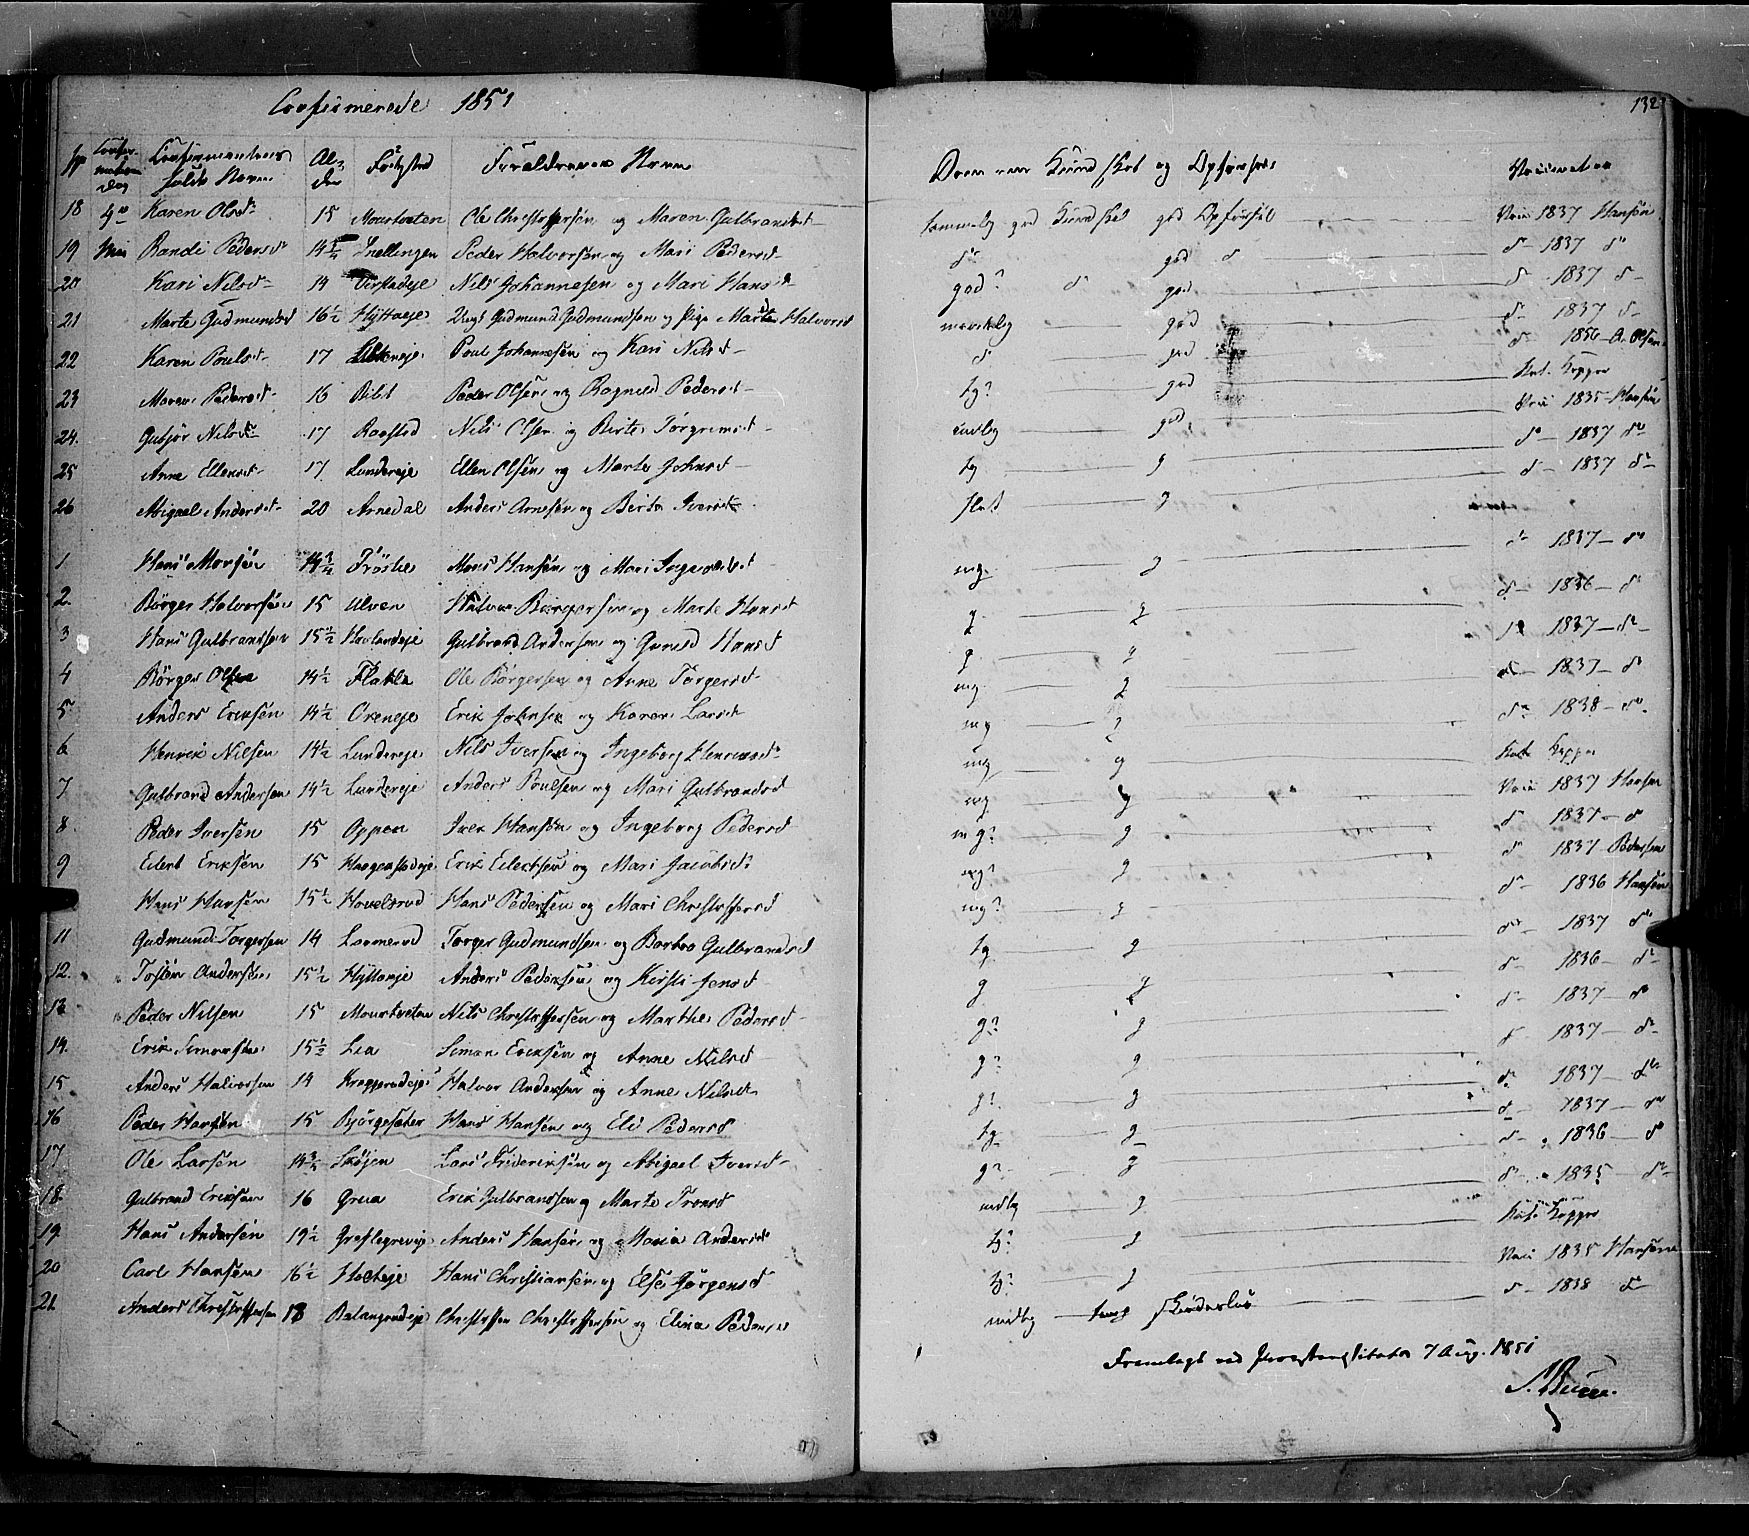 Confirmerede 1851
132
No Confirmations Dag Confirmantens fulde Navn Alder Fødested Forældrenes Navne Dom om Kundskab og Opførsel Vaccination
18 4de Karen Olsd. 15 Ole Christophersen og Maren Gulbrandsd. temmelig god Kundskab god Opførsel Vacc 1837 Hansen
19 Mai Randi Pedersd 14 3/4 Snellingen Peder Halvorsen og Mari Pedersd. do god do do 1837 do
20 Kari Nilsd. 14 Nils Johannesen og Mari Hansd god? do god do 1837 do
21 Marte Gudmundsd 16 1/2 Hytteeje Ungk Gudmund Gudmundsen og Pige Marte Halvorsd god do 1837 do
22 Karen Poulsd. 17 Poul Johannesen og Kari Nilsd. do god do 1836 A. Olsen
23 Maren Pedersd. 16 Bilit Peder Olsen og Ragnild Pedersd. tg? god Nat. Kopper
24 Gubjør Nilsd. 17 Raastad Nils Olsen og Birte Torgremsd. god Vacc 1835 Hansen
25 Anne Ellensd. 17 Lundereje Ellen Olsen og Marte Johnsd. tg g do 1837 do
26 Abigael Andersd. 20 Arnedal Anders Arnesen og Berte Iversd. slet g do 1837 do
1 Hans Monsen 14 3/4 Frøslie Mons Hansen og Mari mg. g do 1837 do
2. Børger Halvorsen 15 Ulven Halvor Børgersen og Marte Hansd g g do 1836 do
3 Hans Gulbrandsen 15 1/2 Hovlandseje Gulbrand Andersen og Gunild Hansd g. g do 1837 do
4 Børger Olsen 14 1/2 Flatla Ole Børgersen og Anne Torgersd. mg g do 1837 do
5 Anders Eriksen 14 1/2 Erik Johnsen og Karen Larsd. mg g do 1838 do
6 Henrik Nilsen 14 1/2 Lundereje Nils Iversen og Ingeborg Henriksd. mg g Nat Kopper
7 Gulbrand Andersen 14 1/2 Lundereje Anders Poulsen og Mari Gulbrandsd mg g Vacc 1837 Hansen
8 Peder Iversen 15 Oppen Iver Hansen og Ingeborg Pedersd mg? g do 1837 do
9 Eilert Eriksen 15 Haagenstadeje Erik Eilertsen og Mari Jacobsd. mg? g do 1837 Pedersen
Hans Hansen 15 1/2 Hovelsrud Hans Pedersen og Mari Christoffersd mg? g do 1836 Hansen
11 Gudmund Torgersen 14 Lormerud Torger Gudmundsen og Barbro Gulbrandsd tg g do 1837 do
12. Tosten Andersen 15 1/2 Hytteeje Anders Pedersen og Kirsti Jensd. g g do 1836 do
13 Peder Nilsen 15 Nils Christoffersen og Marthe Pedersd. g? g do 1837 do
14. Erik Simensen 15 1/2 Lea Simen Eriksen og Anne Nilsd g? g do 1837 do
15 Anders Halvorsen 14 Halvor Andersen og Anne Nilsd. g? g do 1837 do
16 Peder Hansen 15 Bjørgeseter Hans Hansen og Eli Pedersd tg g do 1837 do
17 Ole Larsen 14 3/4 Skøjen Lars Frideriksen og Abigael Iversd. g? g do 1836 do
18. Gulbrand Eriksen 16 Grua Erik Gulbrandsen og Marte Tronsd mdlg g do 1835 do
19. Hans Andersen 19 1/2 Anders Hansen og Maria Andersd tg? g Nat. Kopper
20 Carl Hansen 16 1/2 Hans Christiansen og Else Jørgensd tg? g Vacc 1835 Hansen
21. Anders Christoffersen 18 Christoffer Christoffersen og Elina Pedersd mdlg do 1838 do
Fremlagt ved Provstevisitats 7 Aug. 1851